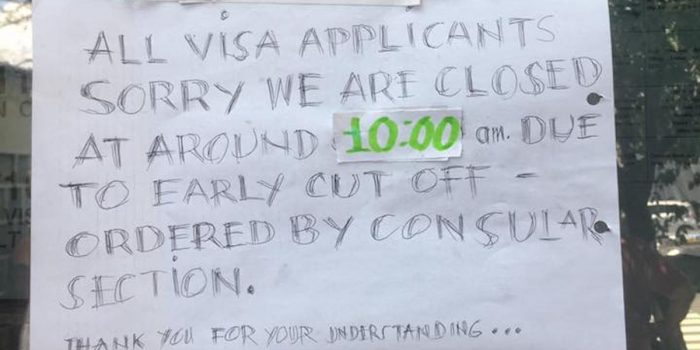 ALL VISA APPLICANTS
SORRY WE ARE CLOSED
AT AROUND 10:00 am. DUE
TO EARLY CUT OFF -
ORDERED BY CONSULAR
SECTION.
THANK YOU FOR YOUR UNDERSTANDING...